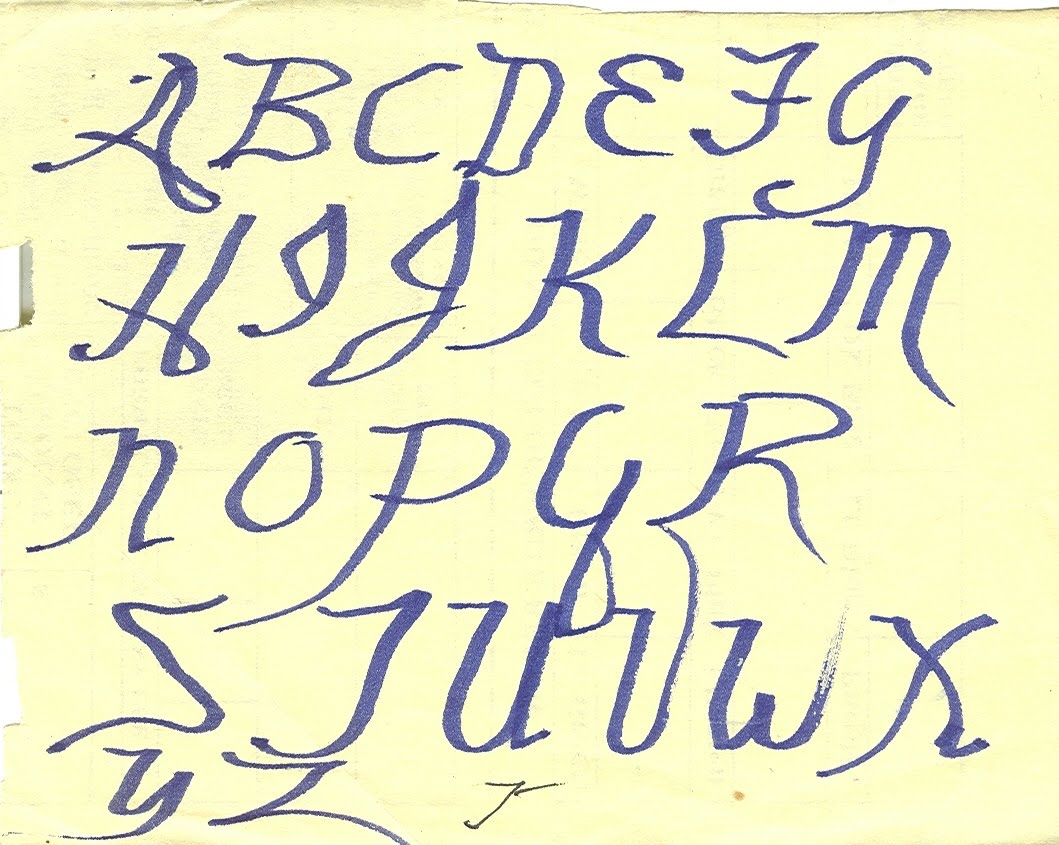 A B C D E F G
H I J K L M
N O P Q R
S T U V W X
Y Z